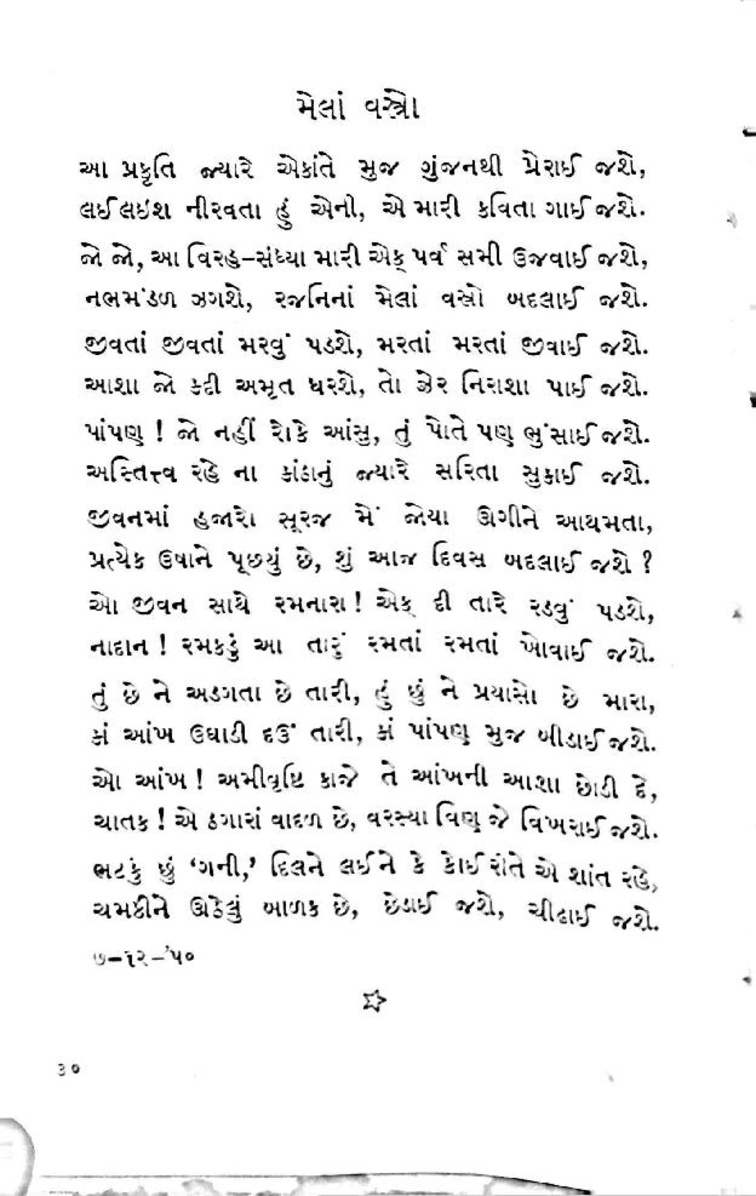 મેલાં વસ્ત્રો
આ પ્રકૃતિ જ્યારે એકાંતે મુજ ગુંજનથી પ્રેરાઈ જશે,
લઈ લઇશ નીરવતા હું એની, એ મારી કવિતા ગાઈ જશે.
જો જો, આ વિરહ-સંધ્યા મારી એક્ પર્વ સમી ઉજવાઈ જશે,
નભમંડળ ઝગશે, રજનિનાં મેલાં વસ્રો બદલાઈ જશે.
જીવતાં જીવતાં મરવું પડશે, મરતાં મરતાં જીવાઈ જશે.
આશા જો કદી અમૃત ધરશે, તો ઝેર નિરાશા પાઈ જશે.
પાંપણ ! જો નહીં રોકે આંસુ, તું પોતે પણ ભુંસાઈ જશે.
અસ્તિત્ત્વ રહે ના કાંઠાનું જ્યારે સરિતા સુકાઈ જશે.
જીવનમાં હજારો સૂરજ મેં જોયા ઊગીને આથમતા,
પ્રત્યેક ઉષાને પૂછ્યું છે, શું આજ દિવસ બદલાઈ જશે ?
ઓ જીવન સાથે રમનારા ! એક્ દી તારે રડવું પડશે,
નાદાન ! રમકડું આ તારું રમતાં રમતાં ખોવાઈ જશે.
તું છે ને અડગતા છે તારી, હું છું ને પ્રયાસો છે મારા,
કાં આંખ ઉઘાડી દઉં તારી, કાં પાંપણ મુજ બીડાઈ જશે.
ઓ આંખ ! અમીવૃષ્ટિ કાજે તે આંખની આશા છોડી દે,
ચાતક ! એ ઠગારાં વાદળ છે, વરસ્યા વિણ જે વિખરાઈ જશે.
ભટકું છું ‘ગની,’ દિલને લઈને કે કોઈ રીતે એ શાંત રહે,
ચમકીને ઊઠેલું બાળક છે, છેડાઈ જશે, ચીઢાઈ જશે.
૭-૧૨-’૫૦
૩૦